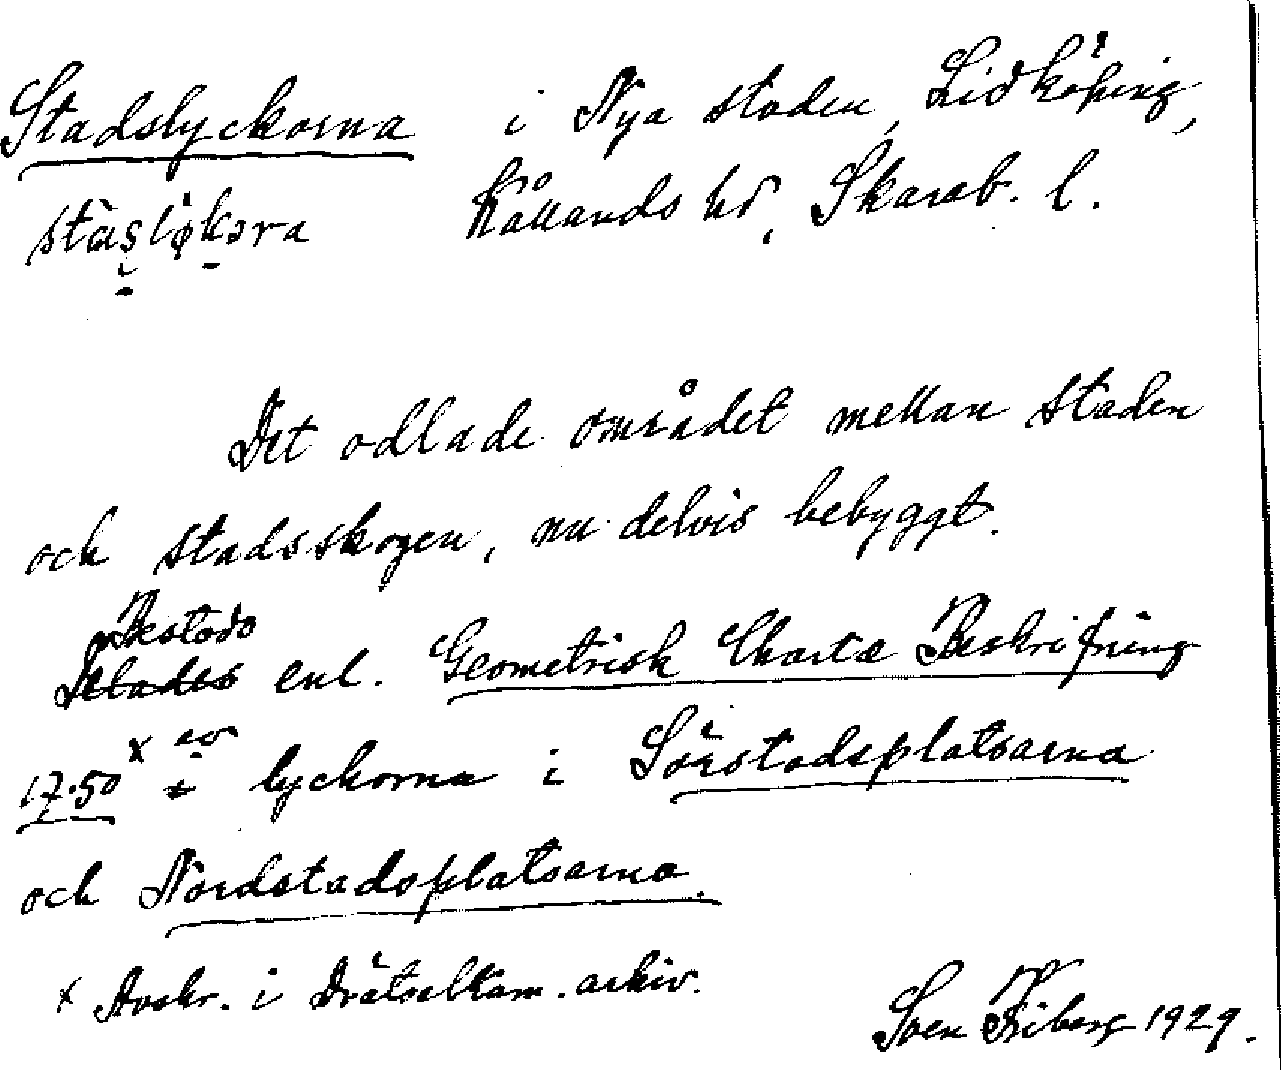 Stadslyckorna i Nya staden, Lidköping,
Kållands hd, Skarab. l.
Det odlade området mellan staden
och stadsskogen, nu delvis bebyggt.
Bestodo
Delades enl. Geometrisk Charta Beskrifning
1750 x av lyckorna i Sörstadsplatsarna
och Nordstadsplatsarna.
x Avskr. i Drätselkam. arkiv.
Sven Friberg 1929.